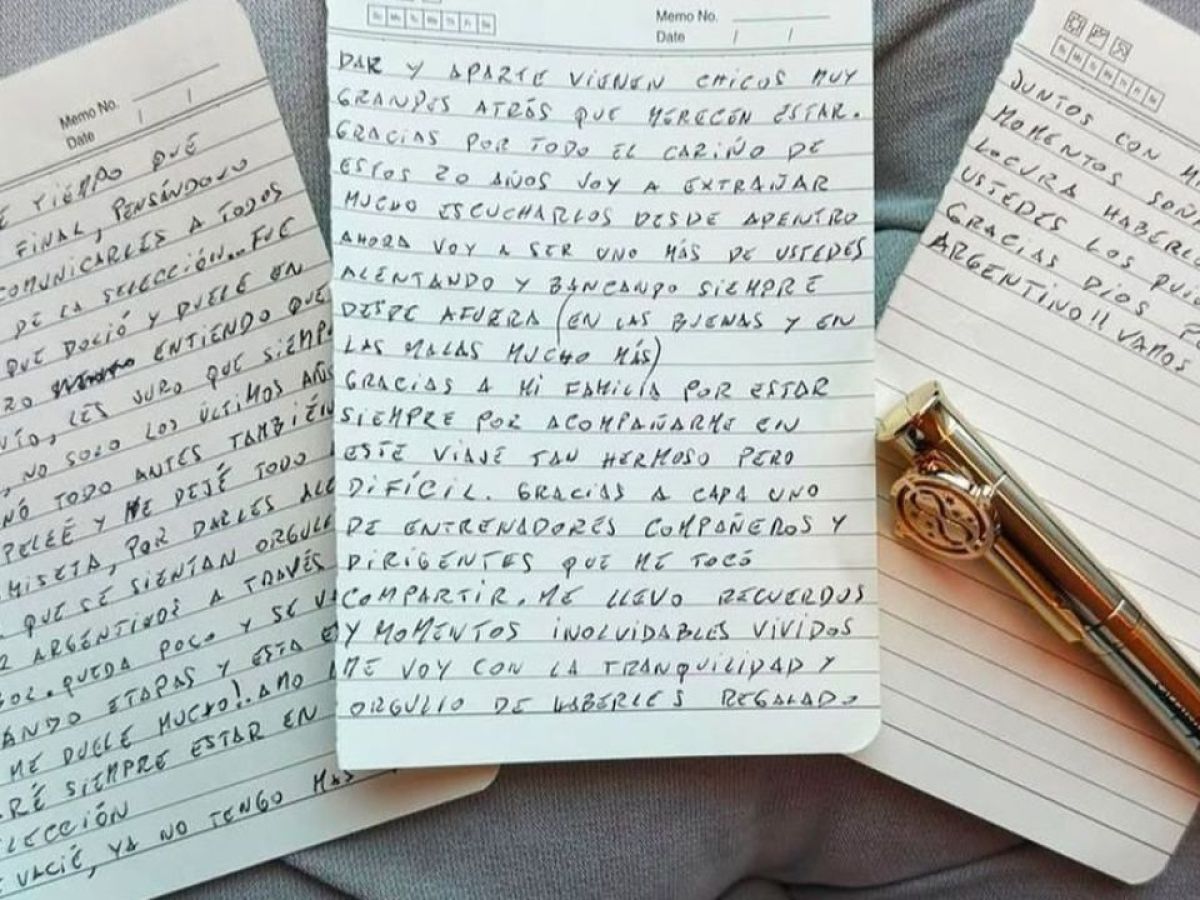 Memo No.
Date / /
TIEMPO QUÉ
FINAL, PENSÁNDOLO
COMUNICARLES A TODOS
DE LA SELECCIÓN... FUE
QUE DOLIÓ Y DUELE EN
ENTIENDO QUE
LES JURO QUE SIEMPRE
NO SOLO LOS ÚLTIMOS AÑOS
TODO ANTES TAMBIÉN
PELEÉ Y ME DEJÉ TODO
POR DARLES ALE
QUE SE SIENTAN ORGULL
ARGENTINOS A TRAVÉS
QUEDA POCO Y SE VA
ANDO ETAPAS Y ESTA
ME DUELE MUCHO!. AMO
RÉ SIEMPRE ESTAR EN
LECCIÓN
VACIÉ, YA NO TENGO MAS
Su Mo Tu We Th Fr Sa
Memo No.
Date / /
DAR Y APARTE VIENEN CHICOS MUY
GRANDES ATRÁS QUE MERECEN ESTAR.
GRACIAS POR TODO EL CARIÑO DE
ESTOS 20 AÑOS VOY A EXTRAÑAR
MUCHO ESCUCHARLOS DESDE ADENTRO
AHORA VOY A SER UNO MÁS DE USTEDES
ALENTANDO Y BANCANDO SIEMPRE
DESDE AFUERA (EN LAS BUENAS Y EN
LAS MALAS MUCHO MÁS)
GRACIAS A MI FAMILIA POR ESTAR
SIEMPRE POR ACOMPAÑARME EN
ESTE VIAJE TAN HERMOSO PERO
DIFÍCIL. GRACIAS A CADA UNO
DE ENTRENADORES COMPAÑEROS Y
DIRIGENTES QUE ME TOCÓ
COMPARTIR. ME LLEVO RECUERDOS
Y MOMENTOS INOLVIDABLES VIVIDOS
ME VOY CON LA TRANQUILIDAD Y
ORGULLO DE HABERLES REGALADO
JUNTOS CON M
MOMENTOS SOÑ
LOCURA HABERLO
USTEDES LOS QUI
GRACIAS DIOS
ARGENTINO!! VAMOS